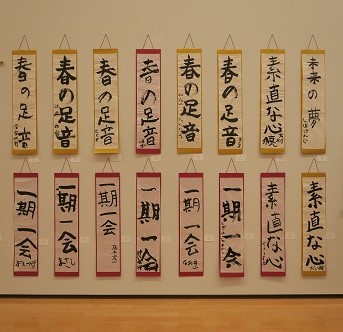 春の足音
春の足音
春の足音
春の足音
春の足音
春の足音
素直な心
未来の夢
一期一会
一期一会
一期一会
一期一会
一期一会
一期一会
素直な心
素直な心